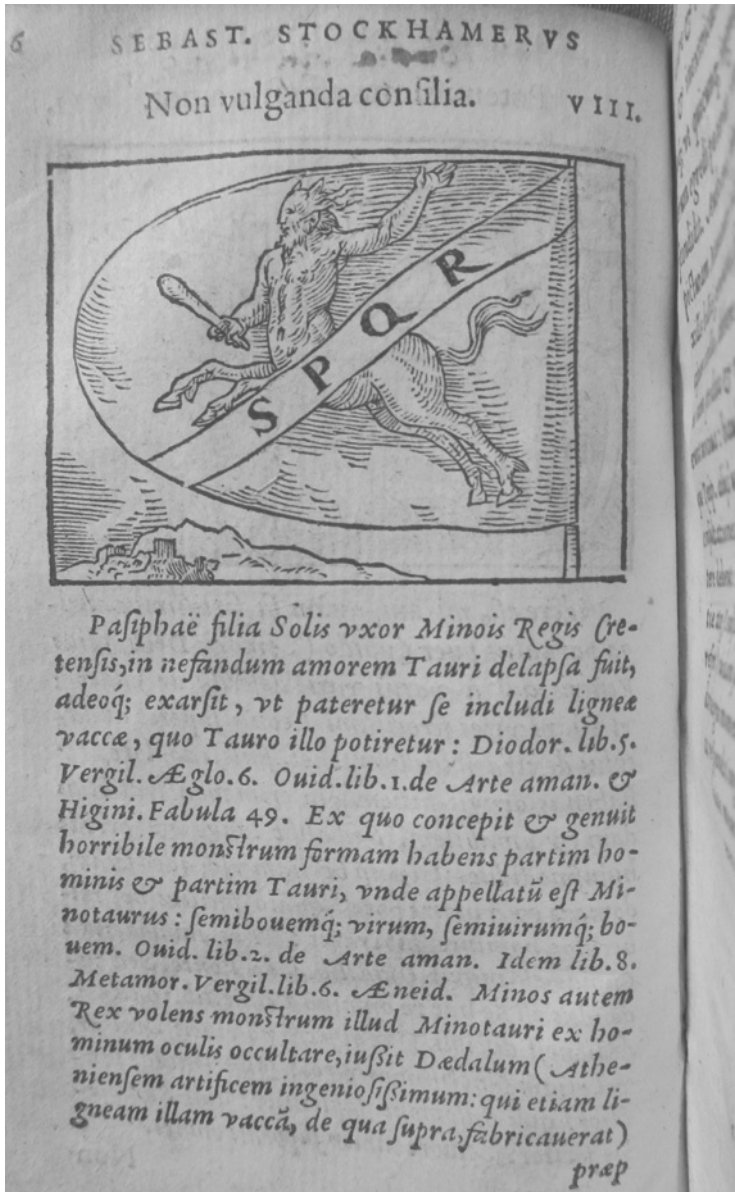 6 SEBAST. STOCKHAMERVS
Non vulganda conſilia. VIII.
S P Q R
Paſiphaë filia Solis vxor Minois Regis Cre-
tenſis, in nefandum amorem Tauri delapſa fuit,
adeoq́; exarſit, vt pateretur ſe includi ligneæ
vaccæ, quo Tauro illo potiretur: Diodor. lib. 5.
Vergil. Æglo. 6. Ouid. lib. 1. de Arte aman. &
Higini. Fabula 49. Ex quo concepit & genuit
horribile monſtrum formam habens partim ho-
minis & partim Tauri, vnde appellatũ eſt Mi-
notaurus: ſemibouemq́; virum, ſemiuirumq́; bo-
uem. Ouid. lib. 2. de Arte aman. Idem lib. 8.
Metamor. Vergil. lib. 6. Æneid. Minos autem
Rex volens monſtrum illud Minotauri ex ho-
minum oculis occultare, iuſſit Dædalum (Athe-
nienſem artificem ingenioſiſſimum: qui etiam li-
gneam illam vaccã, de qua ſupra, fabricauerat)
præp